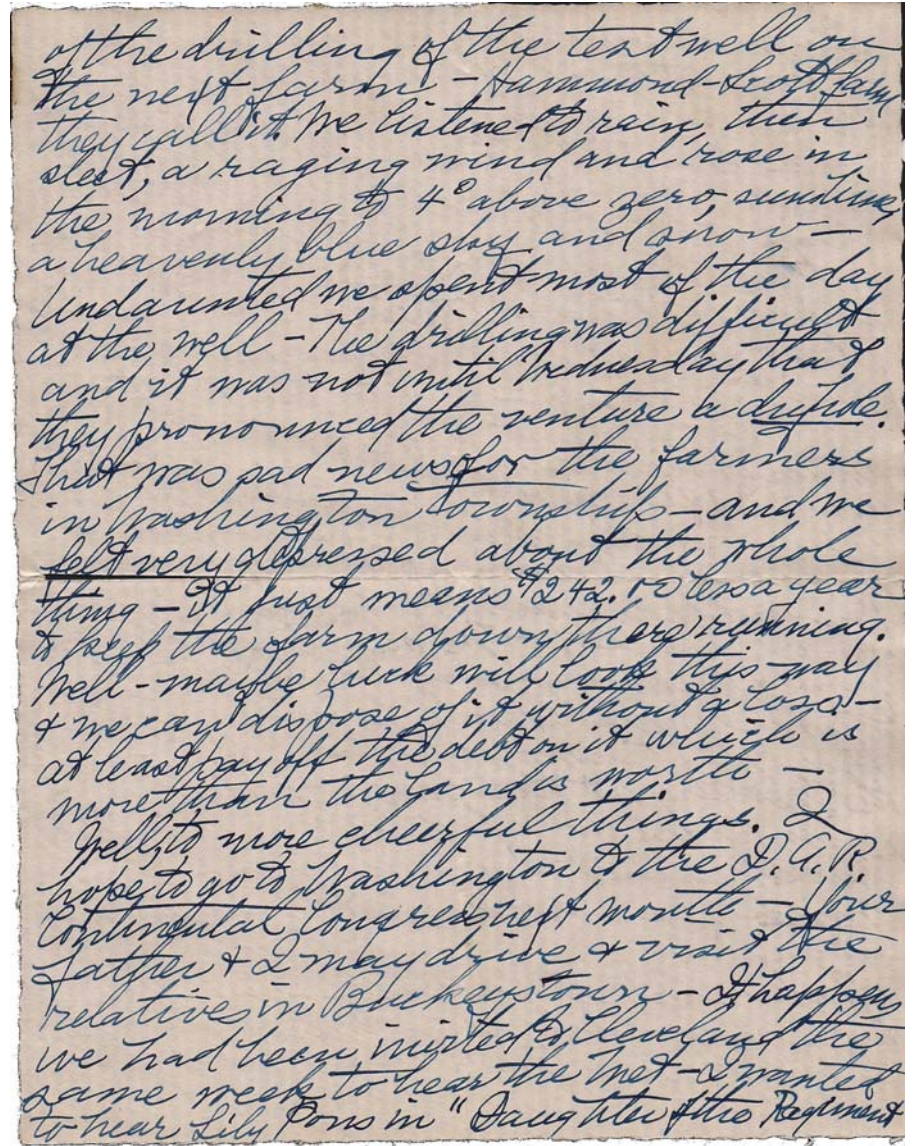 of the drilling of the test well on
the next farm - Hammond-Scott farm
they call it. We listened to rain, then
sleet, a raging wind and rose in
the morning to 4° above zero, sunshine,
a heavenly blue sky and snow -
Undaunted we spent most of the day
at the well - The drilling was difficult
and it was not until Wednesday that
they pronounced the venture a dry hole.
That was sad news for the farmers
in Washington Township - and we
felt very depressed about the whole
thing - It just means $242.00 less a year
to keep the farm down there running.
Well - maybe luck will look this way
& we can dispose of it without a loss -
at least pay off the debt on it which is
more than the land is worth -
Well, to more cheerful things. I
hope to go to Washington to the D.A.R.
Continental Congress next month - Your
father & I may drive & visit the
relatives in Buckeystown - It happens
we had been invited to Cleveland the
same week to hear the Met - I wanted
to hear Lily Pons in "Daughter of the Regiment